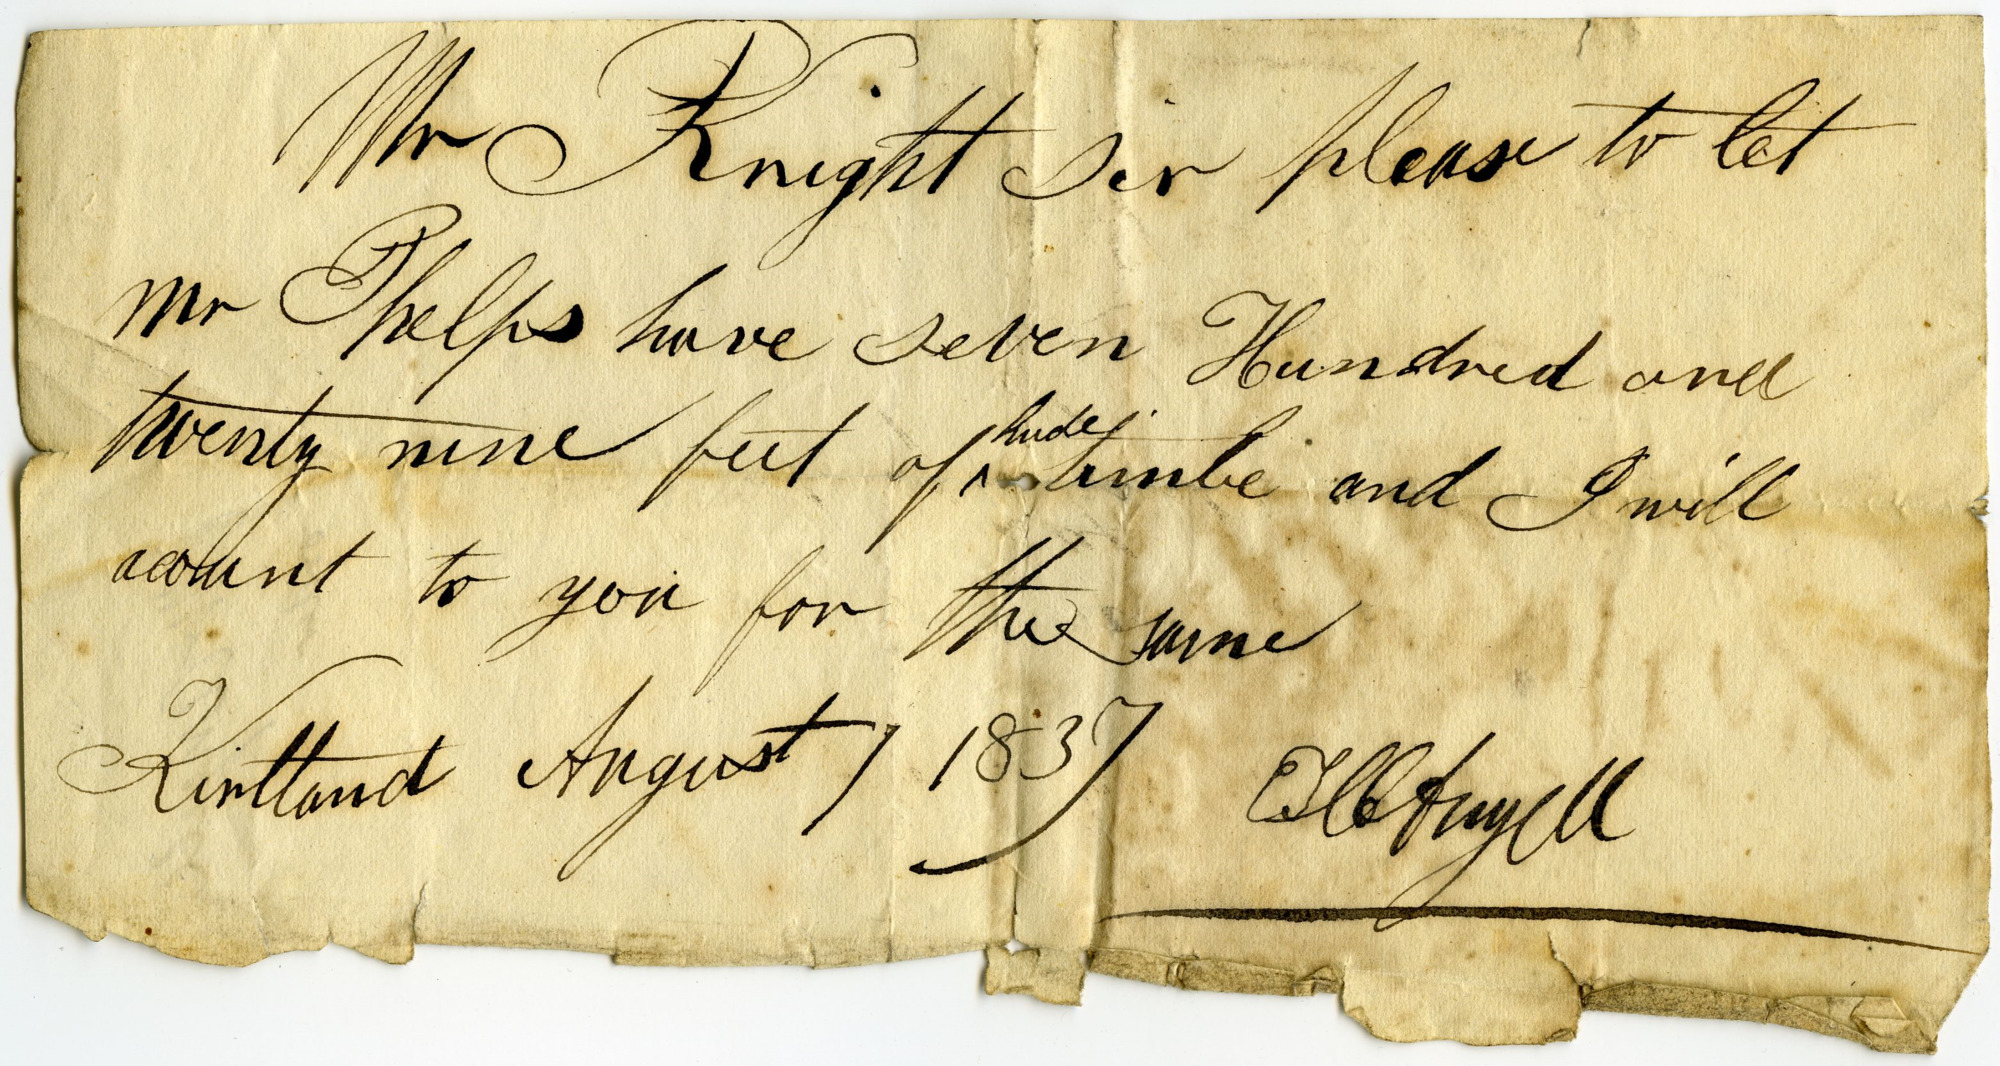 Mr Knight sir please to let
mr Phelps have seven Hundred and
twenty nine feet of timbe and I will
acount to you for the same
Kirtland August 7 1837